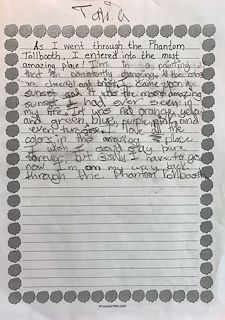 Talia
As I went through the Phantom
Tollbooth, I entered into the most
amazing place! I'm in a painting
that is consistently changing. All the colors
are cheerful and bright. I came upon a
sunset and it was the most amazing
sunset I had ever seen in
my life. It was red, orange, yellow
and green, blue, purple, pink, and
even turquoise. I love all the
colors in this amazing place
I wish I could stay here
forever, but sadly I have to go
now I am my way back
through the Phantom Tollbooth